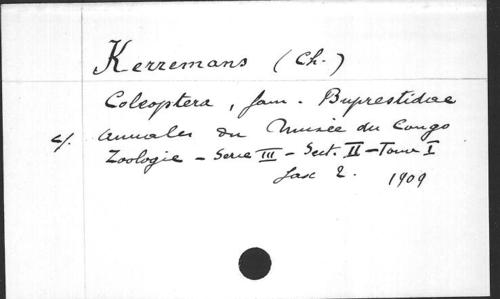 Kerremans (Ch.)
Coleoptera, fam. Buprestidae
c/. Annales du Musée du Congo
Zoologie - Serie III - Sect. II - Tome I
fasc 2. 1909